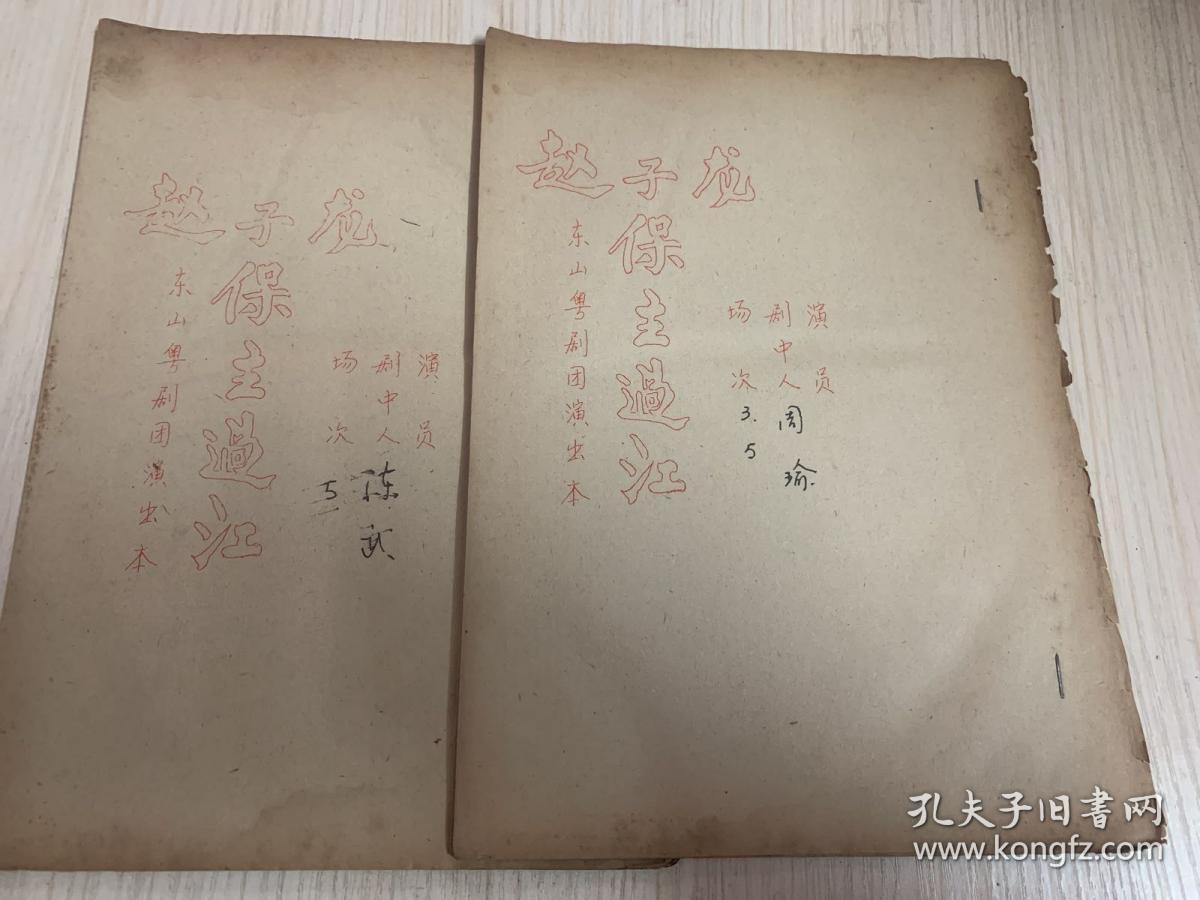 赵子龙
保主過江
东山粤剧团演出本
演员
剧中人
陈武
场次
5
赵子龙
保主過江
东山粤剧团演出本
演员
剧中人
周瑜
场次
3.5
孔夫子旧書网
www.kongfz.com